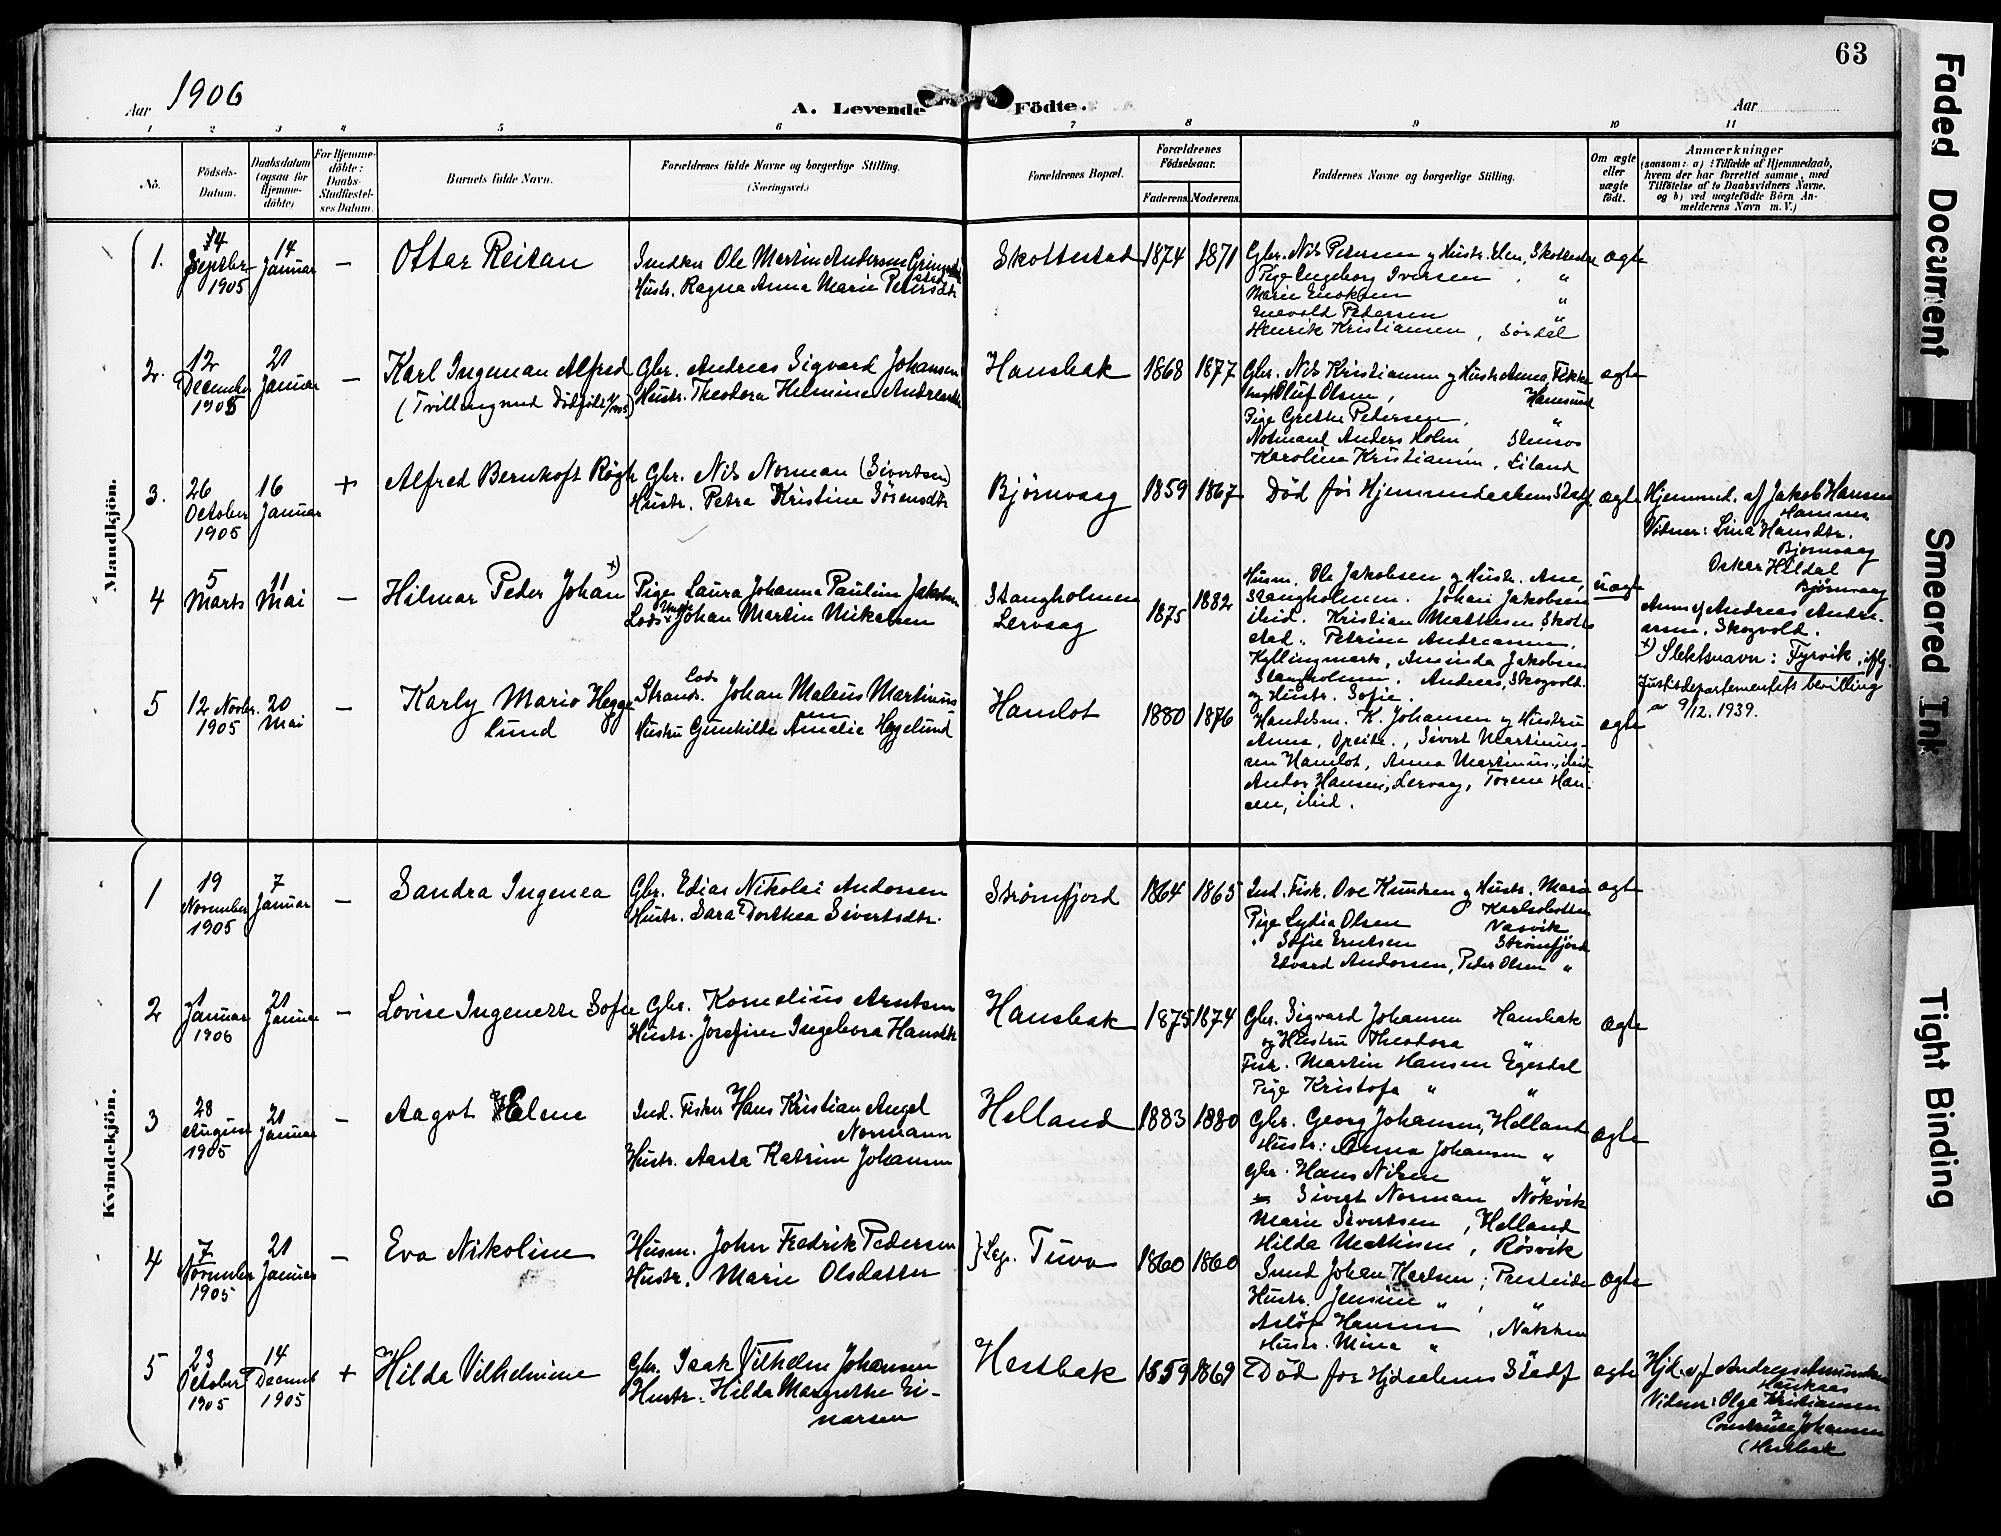 63
Aar 1906
A. Levende Födte.
Aar
1 2 3 4 5 6 7 8 9 10 11
No.
Födsels-Datum.
Daabsdatum (ogsaa for Hjemme-döbte)
For Hjemme-döbte: Daabs-Stadfæstel-ses Datum.
Barnets fulde Navn.
Forældrenes fulde Navne og borgerlige Stilling. (Næringsvei.)
Forældrenes Bopæl.
Forældrenes Födselsaar.
Faderens. Moderens.
Faddernes Navne og borgerlige Stilling.
Om ægte eller uægte født.
Anmærkninger
(saasom: a) i Tilfælde af Hjemmedaab,
hvem der har forrettet samme, med
Tilföielse af to Daabsvidners Navne,
og b) ved uægtefödte Börn An-
melderens Navn m. V.)
Mandkjön.
1. 14 Septbr 1905
14 Januar
—
Ottar Reitan
Ole Martin Andersen
Hustr. Ragna Anna Marie Petersdtr
Skottestad
1874 1871
Gbr. Nils Petersen og Hustr. Elen, Skottestad
Pige Ingeborg Iversen "
Marie Enoksen "
Enevold Pedersen "
Henrik Kristiansen, Sördal
ægte
2. 12 December 1905
21 Januar
—
Karl Ingeman Alfred
(Tvilling med Dödfödt
Gbr. Andreas Sigvard Johansen
Hustr. Theodora Helmine Andreasdtr
Hansbak
1868 1877
Gbr. Nils Kristiansen og Hustr. Anna,
Oluf Olsen, Hamsund
Pige Grethe Pedersen, "
Anders Holm,
Karoline Kristiansen, Eiland
ægte
3. 26 October 1905
16 Januar
+
Alfred Bernhoft Røgh
Gbr. Nils Norman (Sivertsen)
Hustr. Petra Kristine Sörensdtr
Bjørnvaag
1859 1867
Død før Hjemmedaabens Stadf.
ægte
Hjemmed. af Jakob Hansen
Hamnes
Vidner: Lina Hansdtr.
Bjørnvaag
Oskar Hildal
Bjørnvaag
4 5 Marts
11 Mai
—
Hilmar Peder Johan x)
Pige Laura Johanna Pauline Jakobsen
Ungk. Lods Johan Martin Mikalsen
Stangholmen
Lervaag
1875 1882
Husm. Ole Jakobsen og Hustr. Ane,
Stangholmen. Johan Jakobsen
ibid. Kristian Mathisen Skotte
stad. Petrine Andreasen,
Kyllingmark, Aminda Jakobsen
Stangholmen, Andreas, Skogvold.
og Hustr. Sofie.
uægte
Anm. af Andreas Andre-
asen, Skogvold.
x) Slektsnavn: Fyrvik, iflg.
Justisdepartementets bevilling
av 9/12. 1939.
5 12 Novbr. 1905
20 Mai
—
Karly Mario Hegge
lund
Lods
Strands. Johan Maleus Martinus
sen
Hustru Gunhilde Amalie Hegelund
Hamlot
1880 1876
Handelsm. K. Johansen og Hustru
Anna, , Sivert Martinus-
sen Hamlot, Anna Martinus., ibid
Andor Hansen, Lervaag, Torene Han-
sen, ibid.
ægte
Kvindekjön.
1 19 November 1905
7 Januar
—
Sandra Ingenea
Gbr. Edias Nikolai Andorsen
Hustr. Sara Dorthea Sivertsdtr.
Strømfjord
1864 1865
Ind. Fisk. Ove Knudsen og Hustr. Marie
Karlsbotten
Pige Lydia Olsen Vasvik
" Sofie Erntsen Strømfjord
Edvard Andorsen, Peder Olsen "
ægte
2 1 Januar 1906
21 Januar
—
Lovise Ingenette Sofie
Gbr. Kornelius Arntsen
Hustr. Josefine Ingeborg Hansdtr
Hansbak
1875 1874
Gbr. Sigvard Johansen Hansbak
og Hustru Theodora "
Fisk. Martin Hansen Egesdal
Pige Kristofa " "
ægte
3 28 August 1905
21 Januar
—
Aagot Elene
Ind. Fisker Hans Kristian Angel
Normann
Hustr. Aasta Katrine Johansen
Helland
1883 1880
Gbr. Georg Johansen, Helland
Hustr: Anna Johansen "
Gbr. Hans Nilsen "
Sivert Norman Nökvik
Marie Sivertsen, Helland
Hilda Mattisen, Røsvik
ægte
4 7 November 1905
21 Januar
—
Eva Nikoline
Husm. John Fredrik Pedersen
Hustr. Marie Olsdatter
} Tuva
1860 1860
Johan Karlsen, Presteide
Hustr. Jensine " "
Aslöf Hansen, Nakken
Hustr. Mina " "
ægte
5 23 October 1905
14 Decemb 1905
+
Hilda Vilhelmine
Gbr. Isak Vilhelm Johansen
Hustr. Hilda Margrethe Ei-
narsen
Hestbak
1859 1869
Död før Hjdaabens Stadf
ægte
Hjd. af Andreas Amundsen
Haukaas
Vidner: Olga Kristiansen
og Johansen
(Hestbak
Faded Document
Smeared Ink
Tight Binding